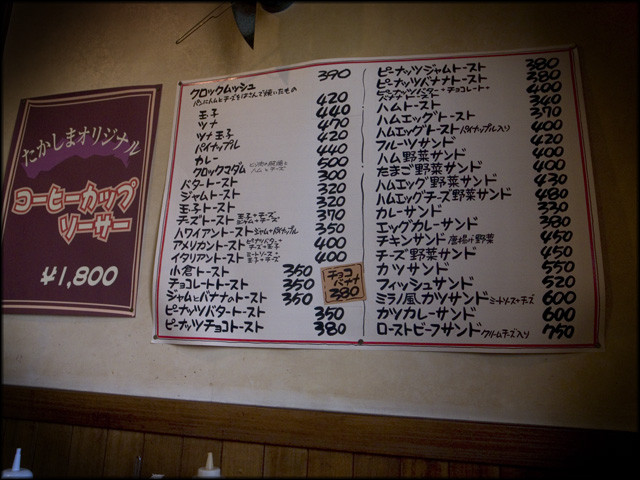 たかしまオリジナル
コーヒーカップ
ソーサー
¥1,800
クロックムッシュ 390
パンにハムとチーズをはさんで焼いたもの
玉子 420
ツナ 440
ツナ玉子 470
パイナップル 420
カレー 440
クロックマダム 500
ハム・チーズ
バタートースト 300
ジャムトースト 320
玉子トースト 320
チーズトースト 370
ハワイアントースト ジャム+パイナップル 350
アメリカントースト ピーナツバター+チーズ+玉子 400
イタリアントースト ミートソース+玉子+チーズ 400
小倉トースト 350
チョコレートトースト 350
ジャムとバナナのトースト 350
ピーナッツバタートースト 350
ピーナッツチョコトースト 380
チョコバナナ 380
ピーナッツジャムトースト 380
ピーナッツバナナトースト 380
ピーナッツバター・チョコレート・バナナトースト 400
ハムトースト 340
ハムエッグトースト 390
ハムエッグトースト パイナップル入り 400
フルーツサンド 420
ハム野菜サンド 400
たまご野菜サンド 400
ハムエッグ野菜サンド 430
ハムエッグチーズ野菜サンド 480
カレーサンド 330
エッグカレーサンド 380
チキンサンド 唐揚げ野菜 450
チーズ野菜サンド 450
カツサンド 550
フィッシュサンド 520
ミラノ風カツサンド ミートソース+チーズ 600
カツカレーサンド 600
ローストビーフサンド クリームチーズ入り 750